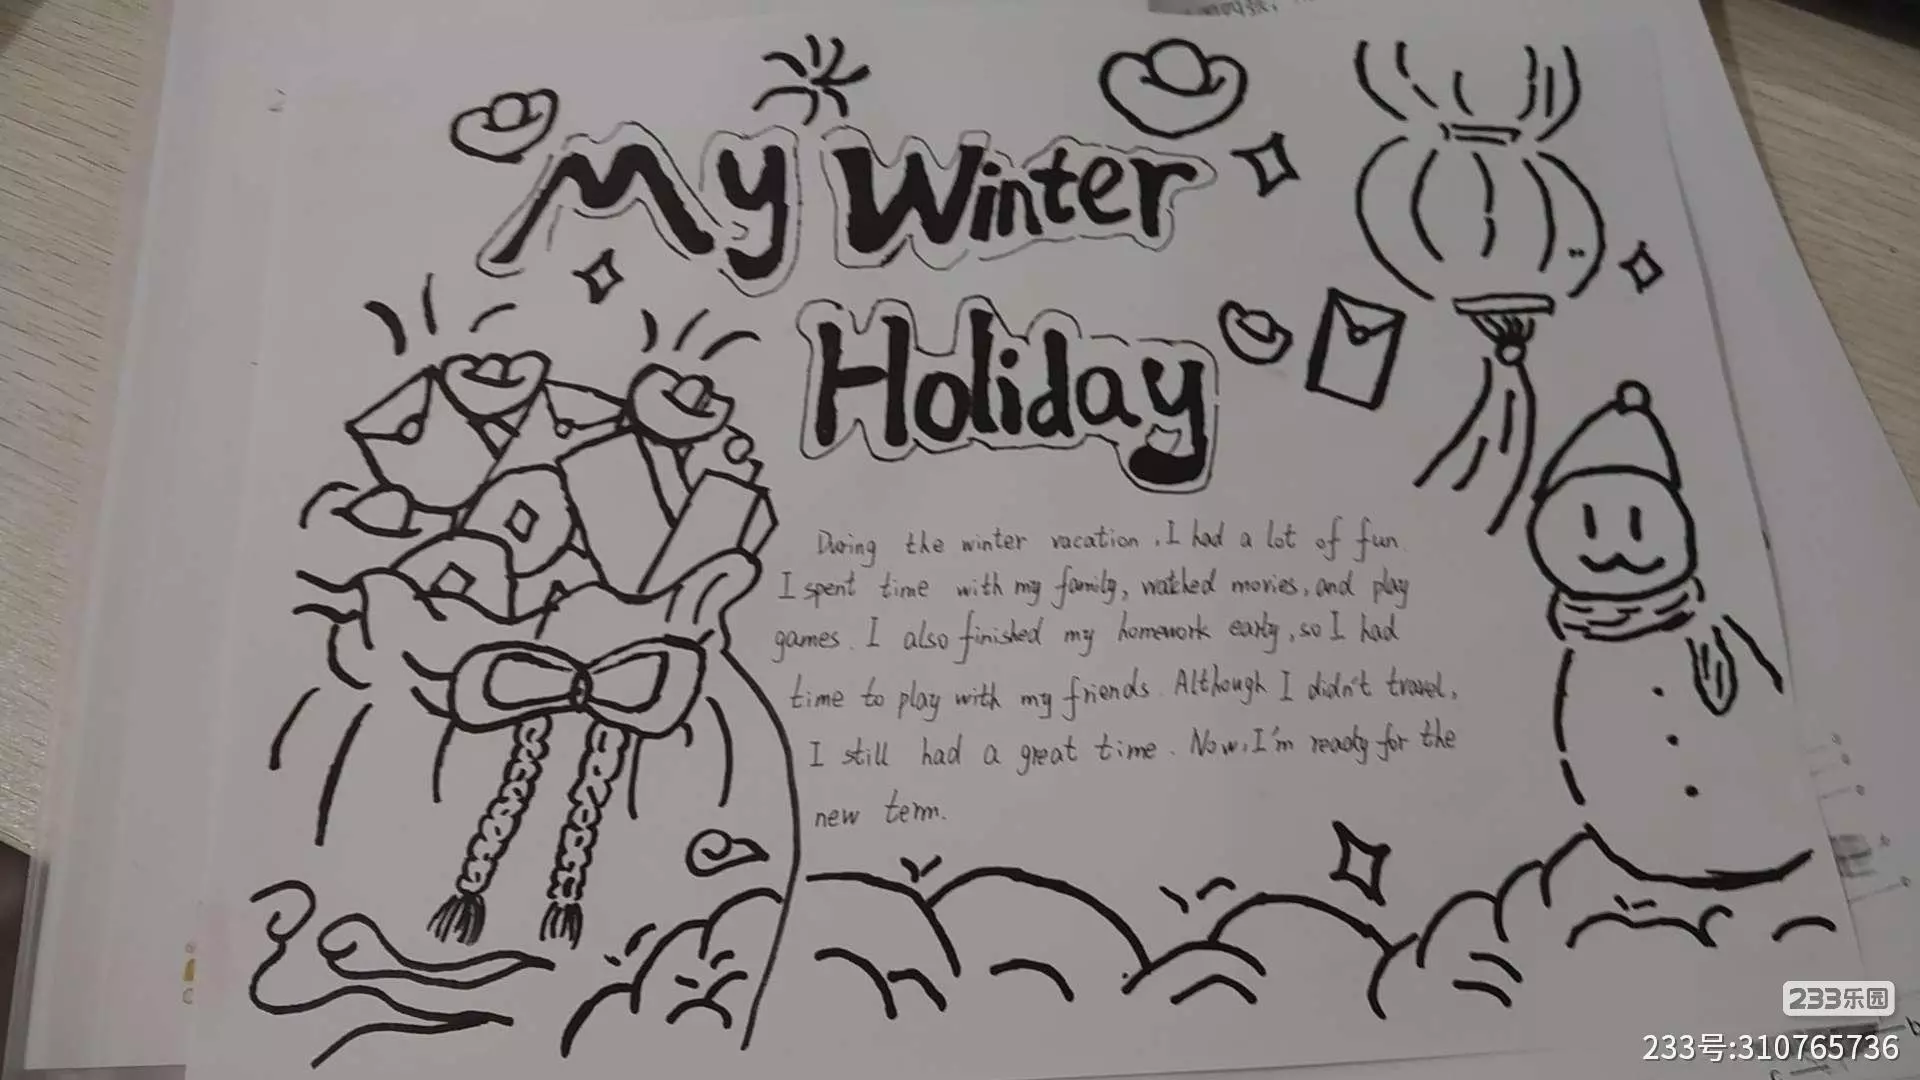 My Winter
Holiday
During the winter vacation, I had a lot of fun.
I spent time with my family, watched movies, and play
games. I also finished my homework early, so I had
time to play with my friends. Although I didn't travel,
I still had a great time. Now, I'm ready for the
new term.
233乐园
233号:310765736